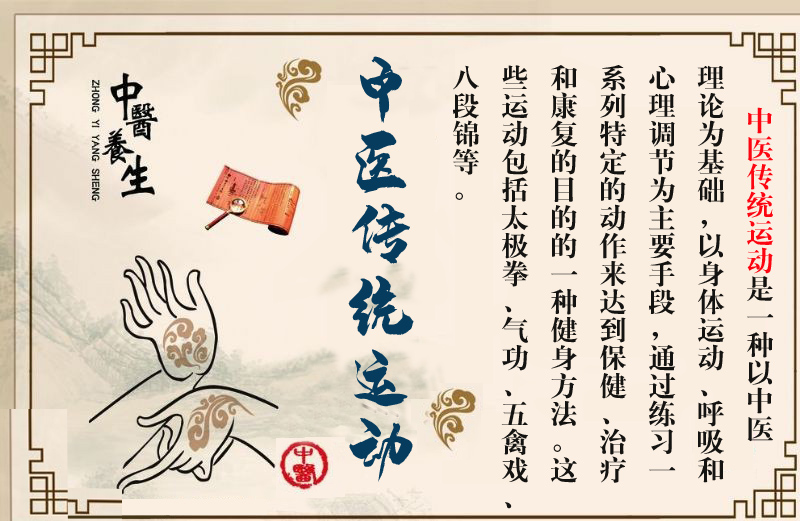 中医传统运动是一种以中医
理论为基础，以身体运动、呼吸和
心理调节为主要手段，通过练习一
系列特定的动作来达到保健、治疗
和康复的目的的一种健身方法。这
些运动包括太极拳、气功、五禽戏、
八段锦等。
中医传统运动
中醫養生
ZHONG YI YANG SHENG
中醫